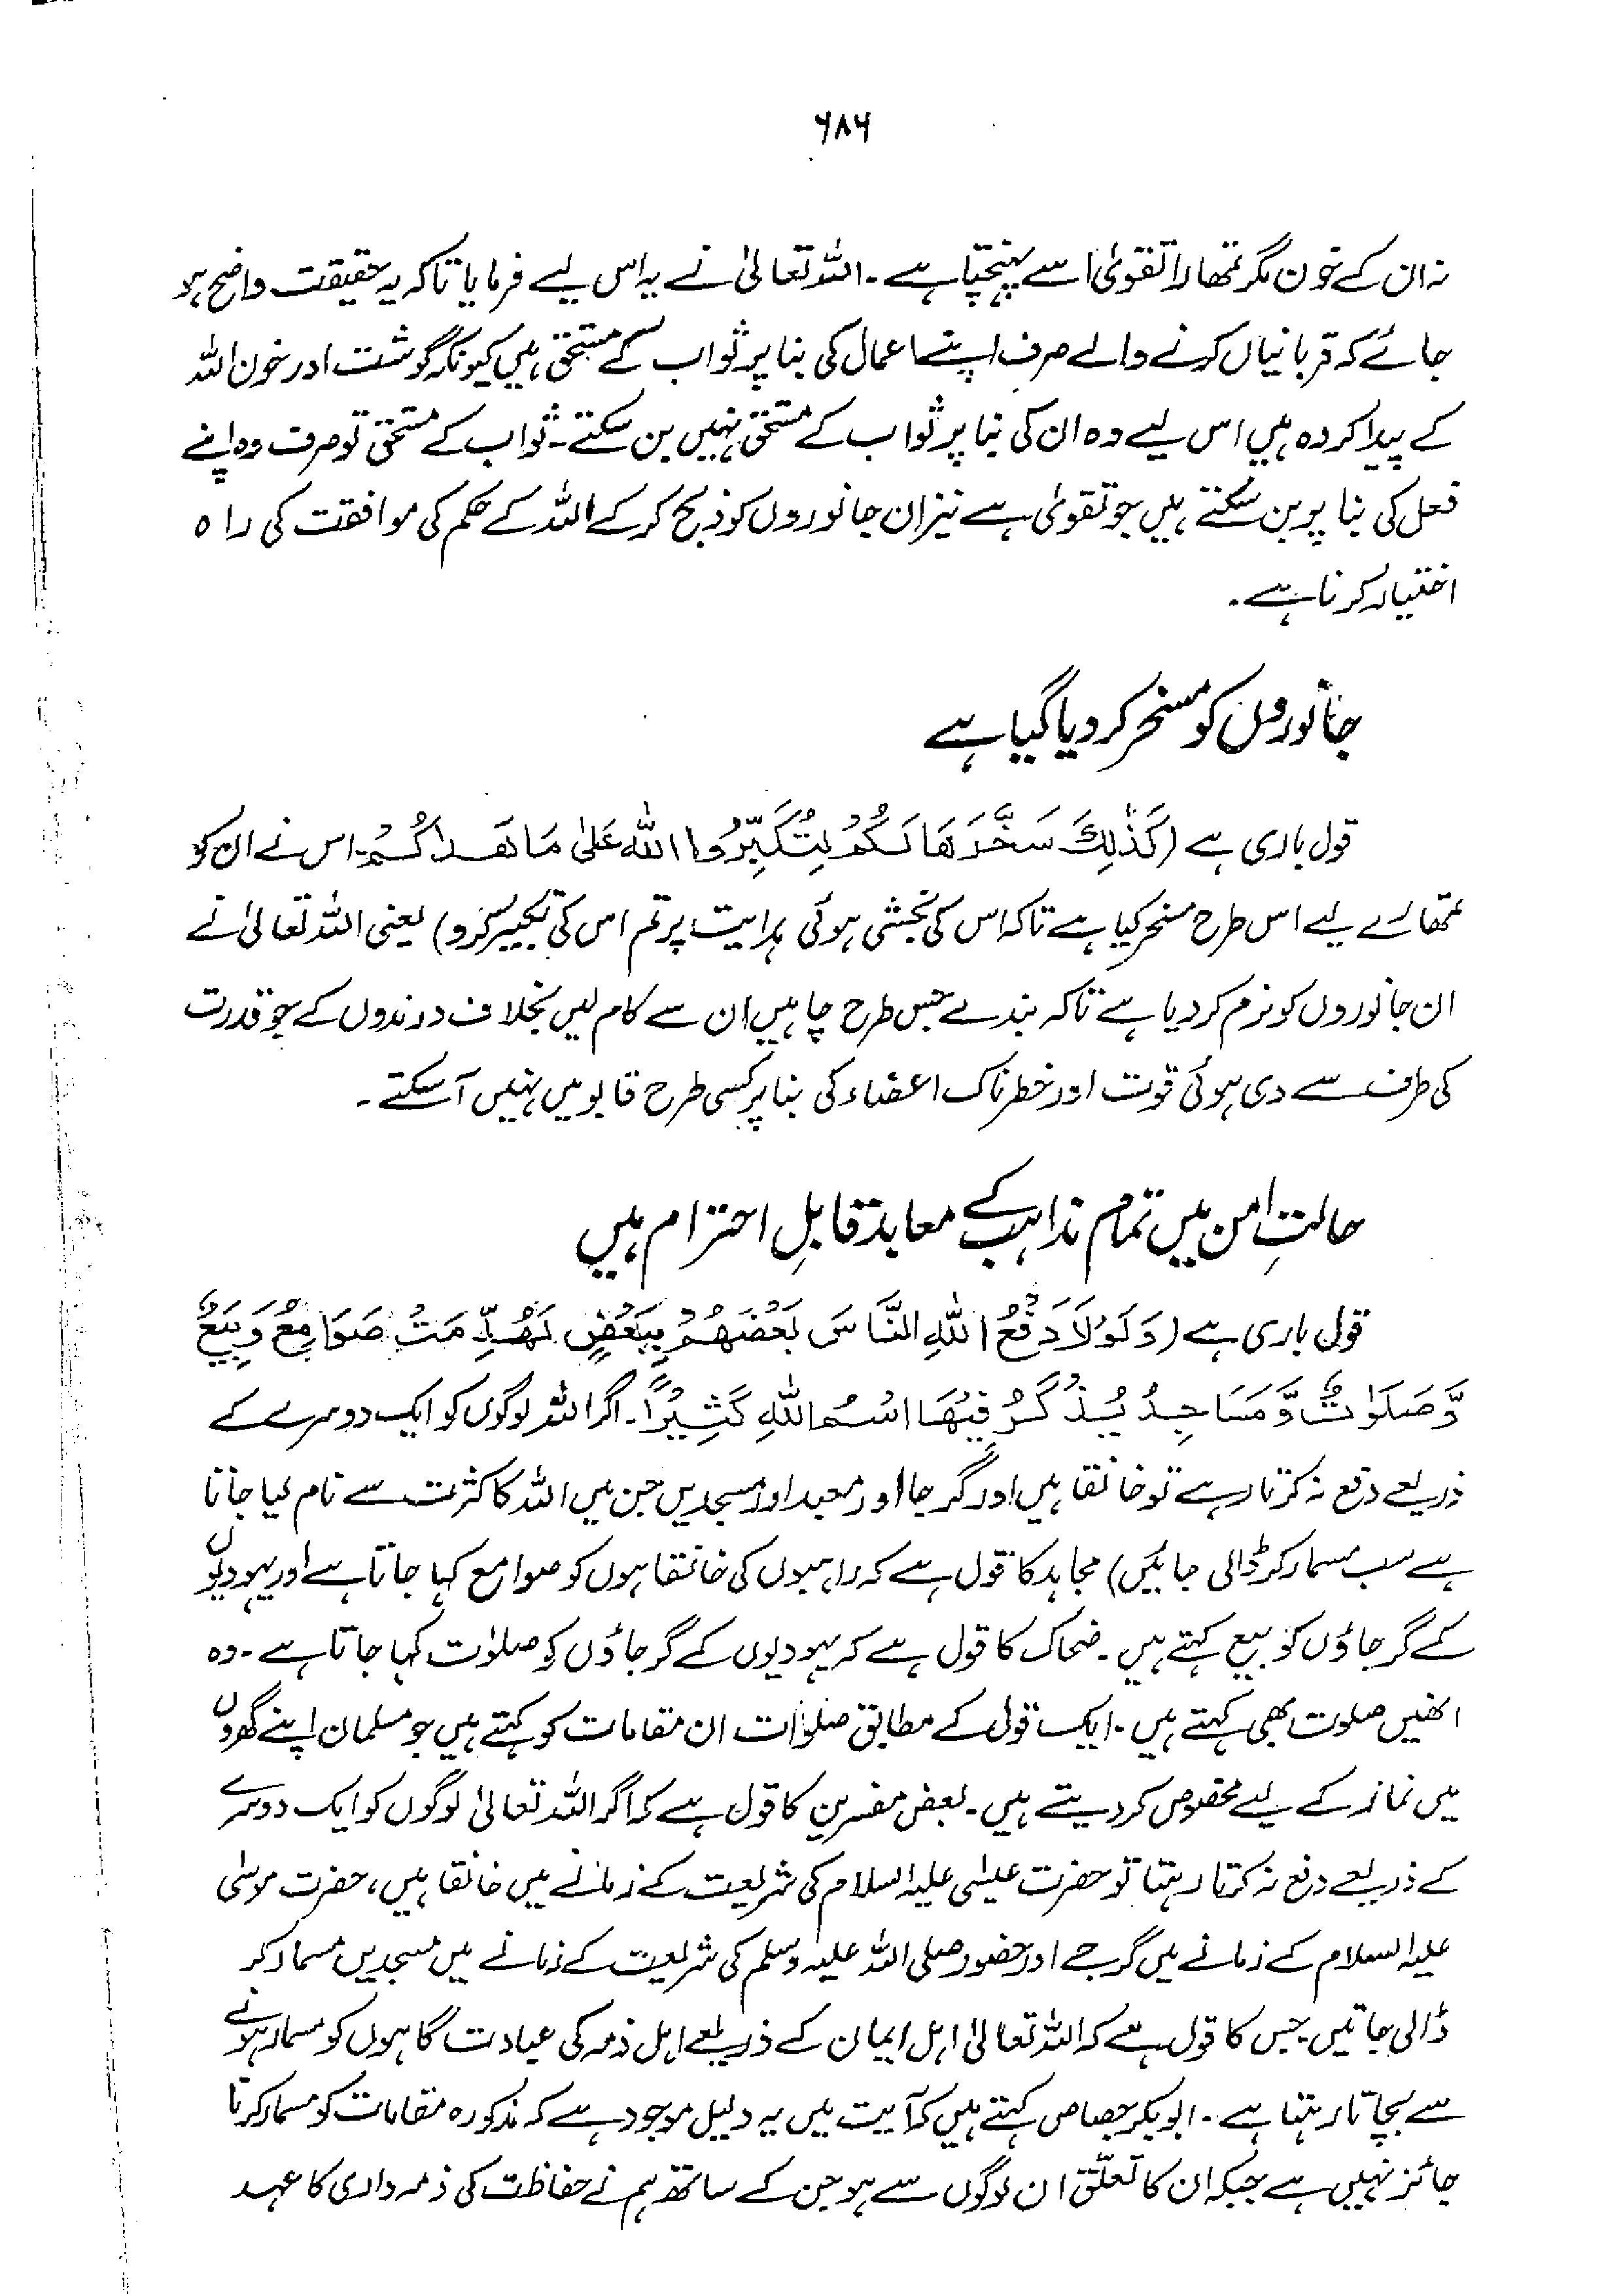 ۶۸۶
نہ ان کے خون مگر تمھارا تقویٰ اسے پہنچتا ہے۔ اللہ تعالیٰ نے یہ اس لیے فرمایا تاکہ یہ حقیقت واضح ہو
جائے کہ قربانیاں کرنے والے صرف اپنے اعمال کی بنا پر ثواب کے مستحق ہیں کیونکہ گوشت اور خون اللہ
کے پیدا کردہ ہیں اس لیے وہ ان کی بنا پر ثواب کے مستحق نہیں بن سکتے۔ ثواب کے مستحق تو صرف وہ اپنے
فعل کی بنا پر بن سکتے ہیں جو تقویٰ ہے نیز ان جانوروں کو ذبح کر کے اللہ کے حکم کی موافقت کی راہ
اختیار کرنا ہے۔
جانوروں کو مسخر کر دیا گیا ہے
قول باری ہے (كَذٰلِكَ سَخَّرَهَا لَكُمْ لِتُكَبِّرُوا اللهَ عَلىٰ مَا هَدَاكُمْ۔ اس نے ان کو
تمھارے لیے اس طرح مسخر کیا ہے تاکہ اس کی بخشی ہوئی ہدایت پر تم اس کی تکبیر کرو) یعنی اللہ تعالیٰ نے
ان جانوروں کو نرم کر دیا ہے تاکہ بندے جس طرح چاہیں ان سے کام لیں بخلاف درندوں کے جو قدرت
کی طرف سے دی ہوئی قوت اور خطرناک اعضاء کی بنا پر کسی طرح قابو میں نہیں آ سکتے۔
حالتِ امن میں تمام مذاہب کے معابد قابلِ احترام ہیں
قول باری ہے (وَلَوْلَا دَفْعُ اللهِ النَّاسَ بَعْضَهُمْ بِبَعْضٍ لَهُدِّمَتْ صَوَامِعُ وَبِيَعٌ
وَّصَلَوٰتٌ وَّمَسَاجِدُ يُذْكَرُ فِيْهَا اسْمُ اللهِ كَثِيْرًا۔ اگر اللہ لوگوں کو ایک دوسرے کے
ذریعے دفع نہ کرتا رہے تو خانقاہیں اور گرجا اور معبد اور مسجدیں جن میں اللہ کا کثرت سے نام لیا جاتا
ہے سب مسمار کر ڈالی جائیں) مجاہد کا قول ہے کہ راہبوں کی خانقاہوں کو صوامع کہا جاتا ہے اور یہودیوں
کے گرجاؤں کو بیع کہتے ہیں۔ ضحاک کا قول ہے کہ یہودیوں کے گرجاؤں کو صلوٰت کہا جاتا ہے۔ وہ
انھیں صلوت بھی کہتے ہیں۔ ایک قول کے مطابق صلوٰات ان مقامات کو کہتے ہیں جو مسلمان اپنے گھروں
میں نماز کے لیے مخصوص کر دیتے ہیں۔ بعض مفسرین کا قول ہے کہ اگر اللہ تعالیٰ لوگوں کو ایک دوسرے
کے ذریعے دفع نہ کرتا رہتا تو حضرت عیسٰی علیہ السلام کی شریعت کے زمانے میں خانقاہیں، حضرت موسٰی
علیہ السلام کے زمانے میں گرجے اور حضور صلی اللہ علیہ وسلم کی شریعت کے زمانے میں مسجدیں مسمار کر
ڈالی جاتیں۔ جس کا قول ہے کہ اللہ تعالیٰ اہل ایمان کے ذریعے اہل ذمہ کی عبادت گاہوں کو مسمار ہونے
سے بچاتا رہتا ہے۔ ابوبکر جصاص کہتے ہیں کہ آیت میں یہ دلیل موجود ہے کہ مذکورہ مقامات کو مسمار کرنا
جائز نہیں ہے جبکہ ان کا تعلق ان لوگوں سے ہو جن کے ساتھ ہم نے حفاظت کی ذمہ داری کا عہد